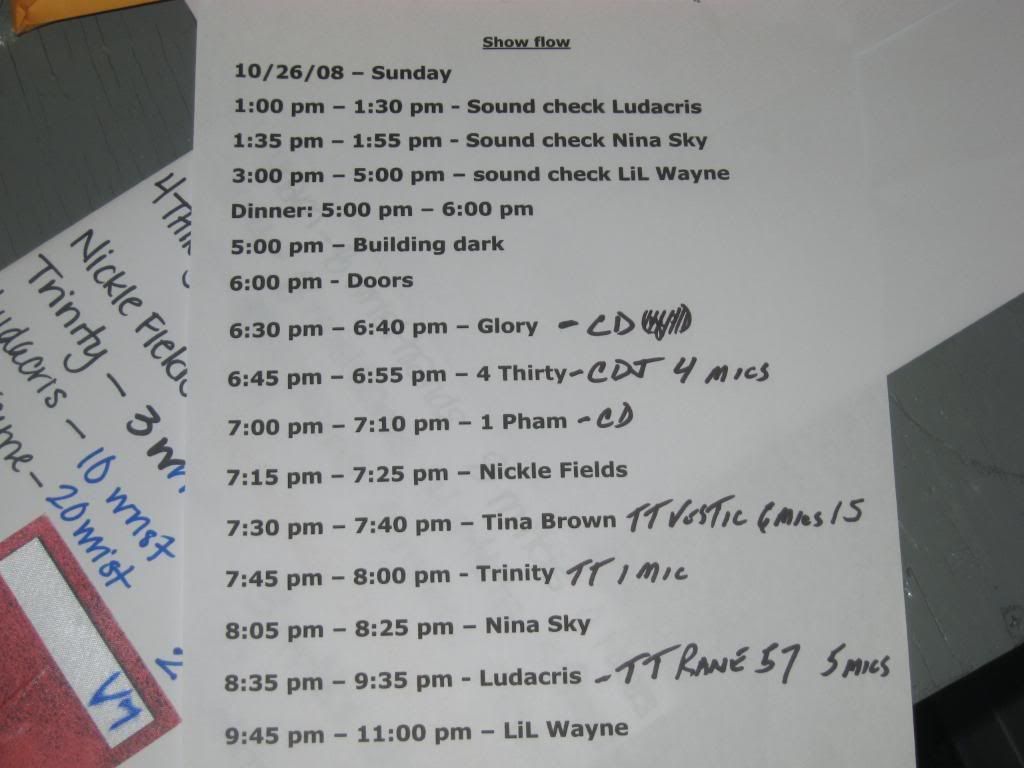 Show flow
10/26/08 – Sunday
1:00 pm – 1:30 pm - Sound check Ludacris
1:35 pm – 1:55 pm - Sound check Nina Sky
3:00 pm – 5:00 pm – sound check LiL Wayne
Dinner: 5:00 pm – 6:00 pm
5:00 pm – Building dark
6:00 pm - Doors
6:30 pm – 6:40 pm – Glory - CD
6:45 pm – 6:55 pm – 4 Thirty - CDJ 4 MICS
7:00 pm – 7:10 pm – 1 Pham - CD
7:15 pm – 7:25 pm – Nickle Fields
7:30 pm – 7:40 pm – Tina Brown TT 6 Mics 15
7:45 pm – 8:00 pm - Trinity TT 1 MIC
8:05 pm – 8:25 pm – Nina Sky
8:35 pm – 9:35 pm - Ludacris - TT RANE 57 5 MICS
9:45 pm – 11:00 pm – LiL Wayne
4 Thi
Nickle Field
Trinity – 3 wr
udacris – 10 wrist
yne – 20 wrist